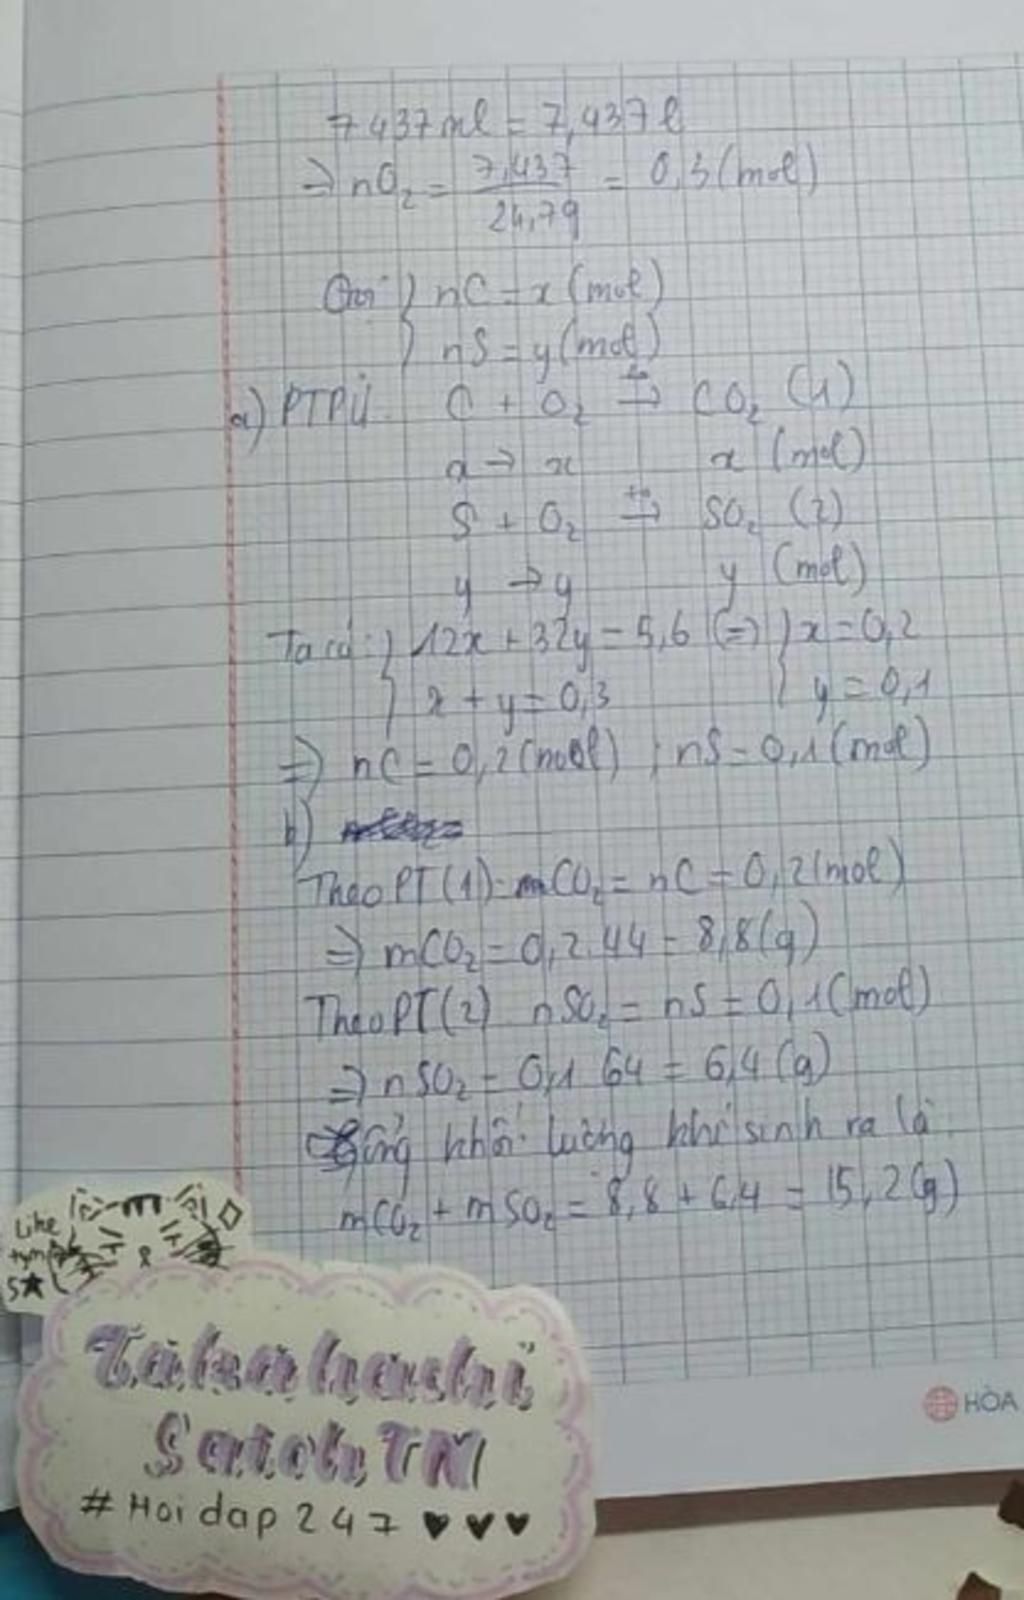 7437ml = 7,437l
=> nO₂ = 7,437/24,79 = 0,3 (mol)
Gọi { nC = x (mol)
{ nS = y (mol)
a) PTPƯ C + O₂ t°→ CO₂ (1)
x → x x (mol)
S + O₂ t°→ SO₂ (2)
y → y y (mol)
Ta có: { 12x + 32y = 5,6 (=> { x = 0,2
{ x + y = 0,3 { y = 0,1
=> nC = 0,2 (mol) ; nS = 0,1 (mol)
b)
Theo PT (1): nCO₂ = nC = 0,2 (mol)
=> mCO₂ = 0,2.44 = 8,8 (g)
Theo PT (2) nSO₂ = nS = 0,1 (mol)
=> nSO₂ = 0,1 64 = 6,4 (g)
Tổng khối lượng khí sinh ra là
mCO₂ + mSO₂ = 8,8 + 6,4 = 15,2 (g)
Like
5★
Takahashi
Satoh TM
# Hoidap 247 ♥♥♥
HÒA